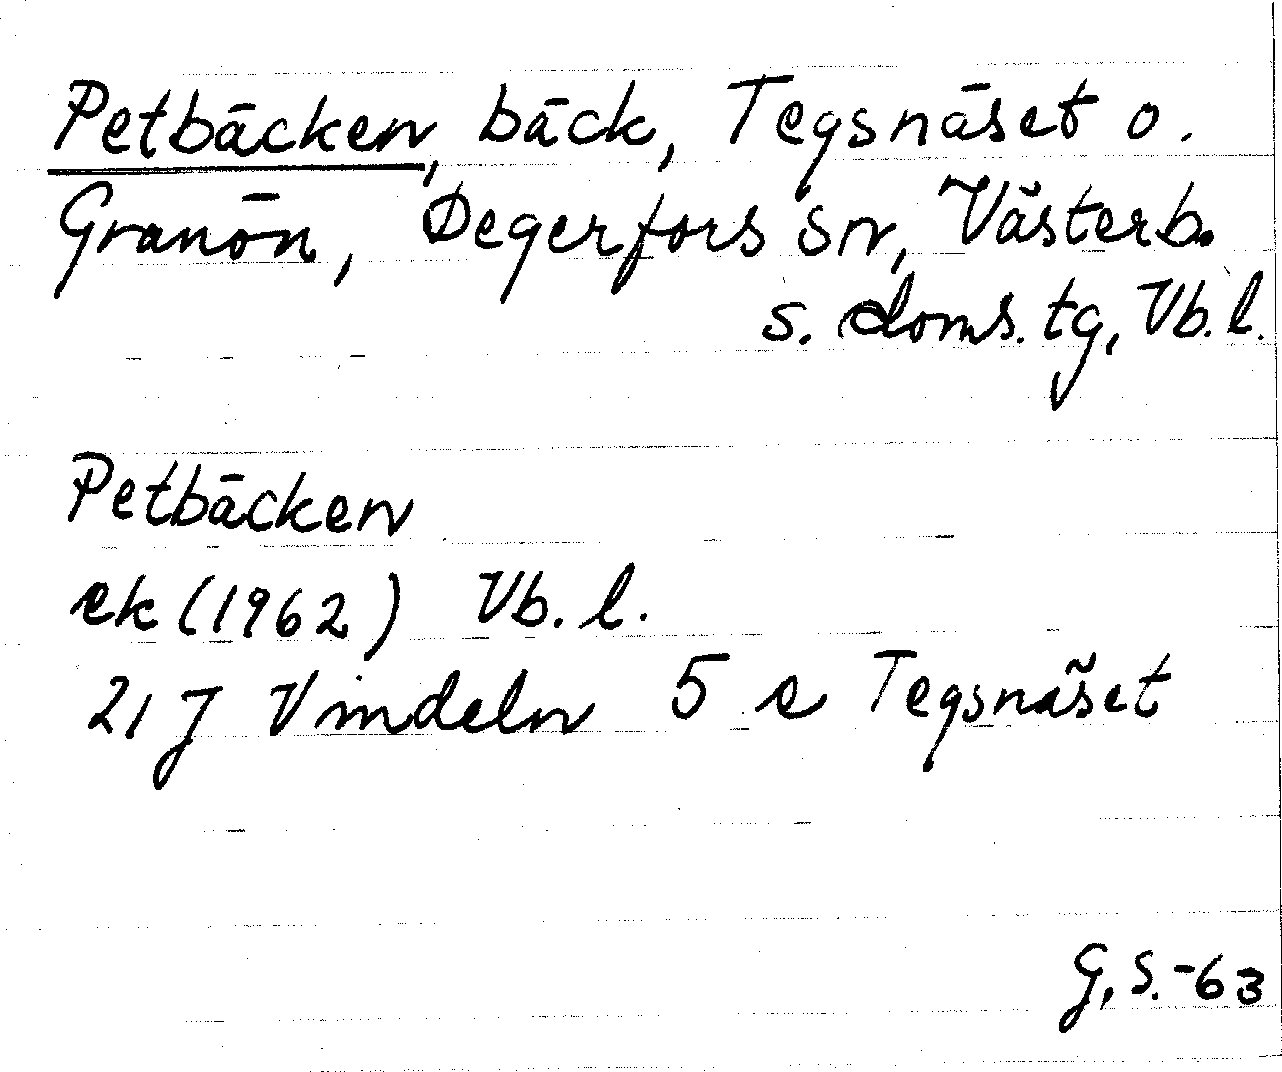 Petbäcken, bäck, Tegsnäset o.
Granön, Degerfors sn, Västerb.
s. doms. tg, Vb. l.
Petbäcken
ek (1962) Vb. l.
21 J Vindeln 5 e Tegsnäset
G. S. -63